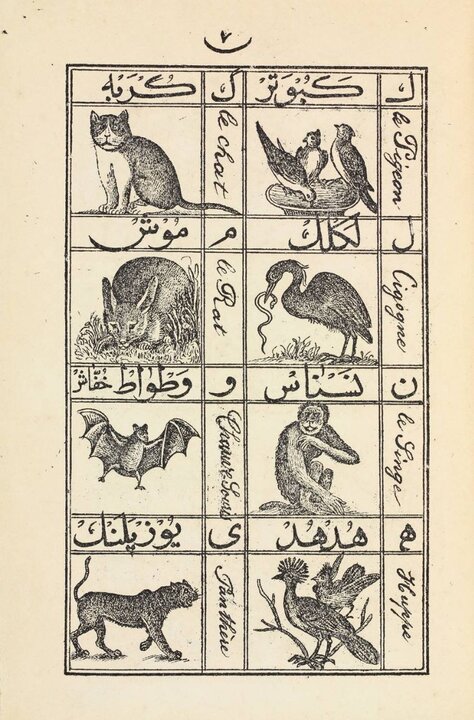 ٧
ك كبوتر گ گربه
le Pigeon
le chat
ل لكلك م موش
Cigogne
le Rat
ن نسناس و وطواط خفاش
le Singe
Chauve Souris
ه هدهد ى يوزپلنك
Huppe
Panthère